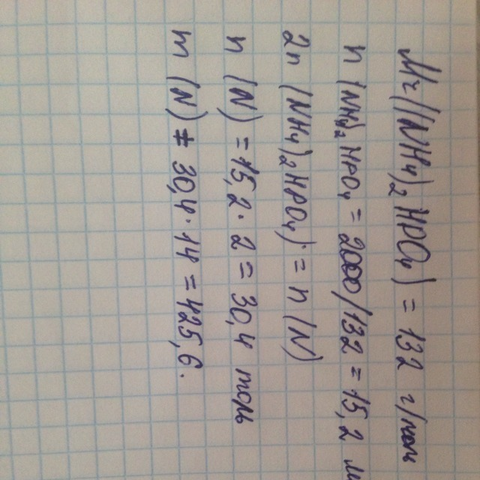 Mr((NH4)2HPO4) = 132 г/моль
n (NH4)2HPO4 = 2000/132 = 15,2 м
2n (NH4)2HPO4) = n(N)
n (N) = 15,2 · 2 = 30,4 моль
m (N) = 30,4 · 14 = 425,6.